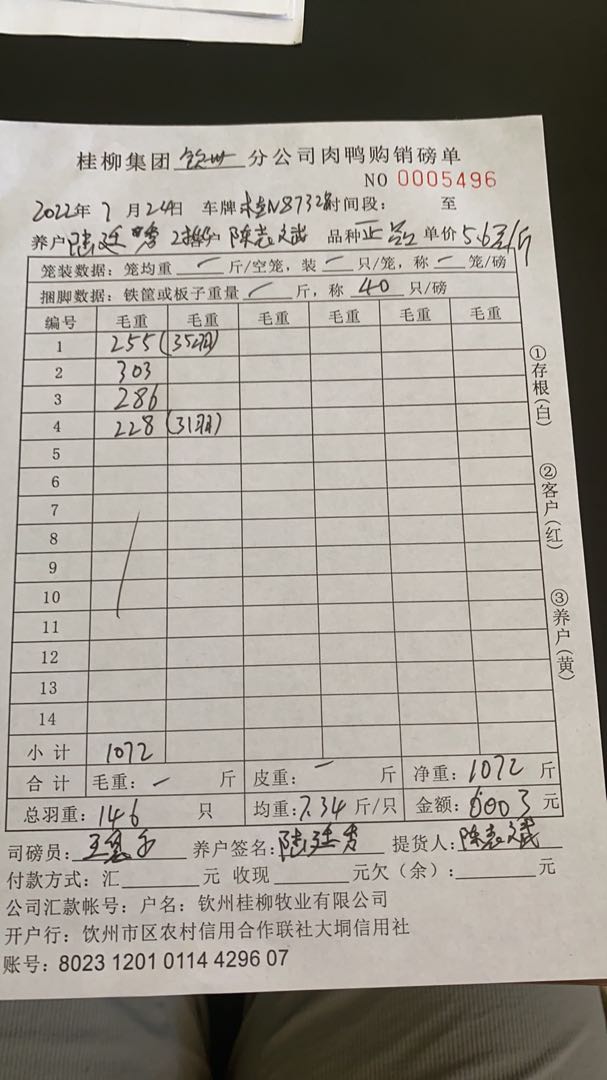 桂柳集团 钦州 分公司肉鸭购销磅单
NO 0005496
2022年 7月24日 车牌 N8732 时间段： 至
养户 陆廷秀 客户 陈志斌 品种 正 单价 5.6元/斤
笼装数据：笼均重 一 斤/空笼，装 一 只/笼，称 一 笼/磅
捆脚数据：铁筐或板子重量 一 斤，称 40 只/磅
编号 毛重 毛重 毛重 毛重 毛重 毛重
1 255 (35羽)
2 303
3 286
4 228 (31羽)
5
6
7
8
9
10
11
12
13
14
小计 1072
合计 毛重： 一 斤 皮重： 一 斤 净重：1072 斤
总羽重：146 只 均重：7.34 斤/只 金额：6003 元
司磅员： 养户签名：陆廷秀 提货人：陈志斌
付款方式：汇 元 收现 元欠（余）： 元
公司汇款帐号：户名：钦州桂柳牧业有限公司
开户行：钦州市区农村信用合作联社大垌信用社
账号：8023 1201 0114 4296 07
①存根（白）
②客户（红）
③养户（黄）